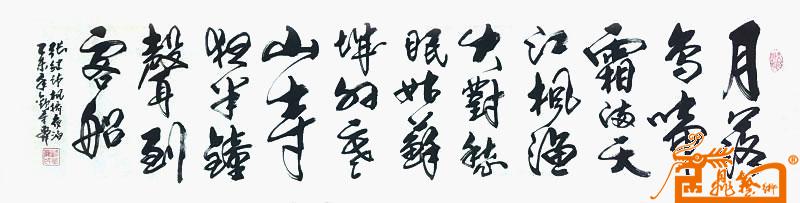 月落
烏啼
霜滿天
江楓漁
火對愁
眠姑蘇
城外寒
山寺
夜半鐘
聲到
客船
張繼詩楓橋夜泊